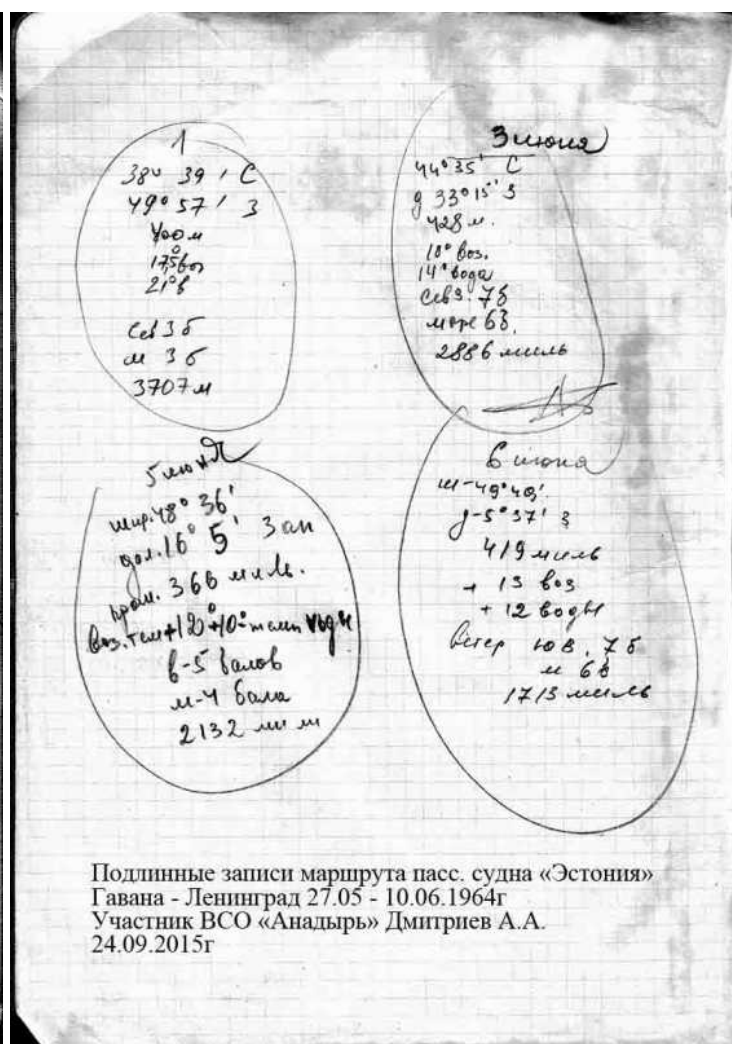 1
38° 39' С
49° 57' З
400 м
17,5° воз
21° в
Сев 3 б
м 3 б
3707 м
3 июня
44° 35' С
д 33° 15' З
428 м.
10° воз.
14° вода
Сев З. 7 б
море 6 б.
2886 миль
5 июня
шир. 48° 36'
дол. 16° 5' Зап
пром. 366 миль.
воз. тем +12° +10° - темп воды
в-5 балов
м-4 бала
2132 мили
6 июня
ш-49° 49'.
д-5° 37' З
419 миль
+ 13 воз
+ 12 воды
ветер ю в. 7 б
м 6 б
1713 миль
Подлинные записи маршрута пасс. судна «Эстония»
Гавана - Ленинград 27.05 - 10.06.1964г
Участник ВСО «Анадырь» Дмитриев А.А.
24.09.2015г